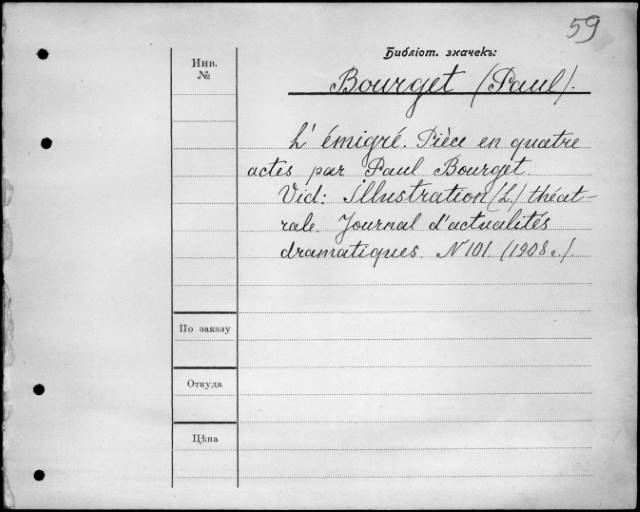 59
Библіот. значекъ:
Инв.
№
Bourget (Paul).
L' émigré. Pièce en quatre
actes par Paul Bourget.
Vid: Illustration (L.) théat-
rale. Journal d'actualités
dramatiques. N 101. (1908 г.).
По заказу
Откуда
Цѣна